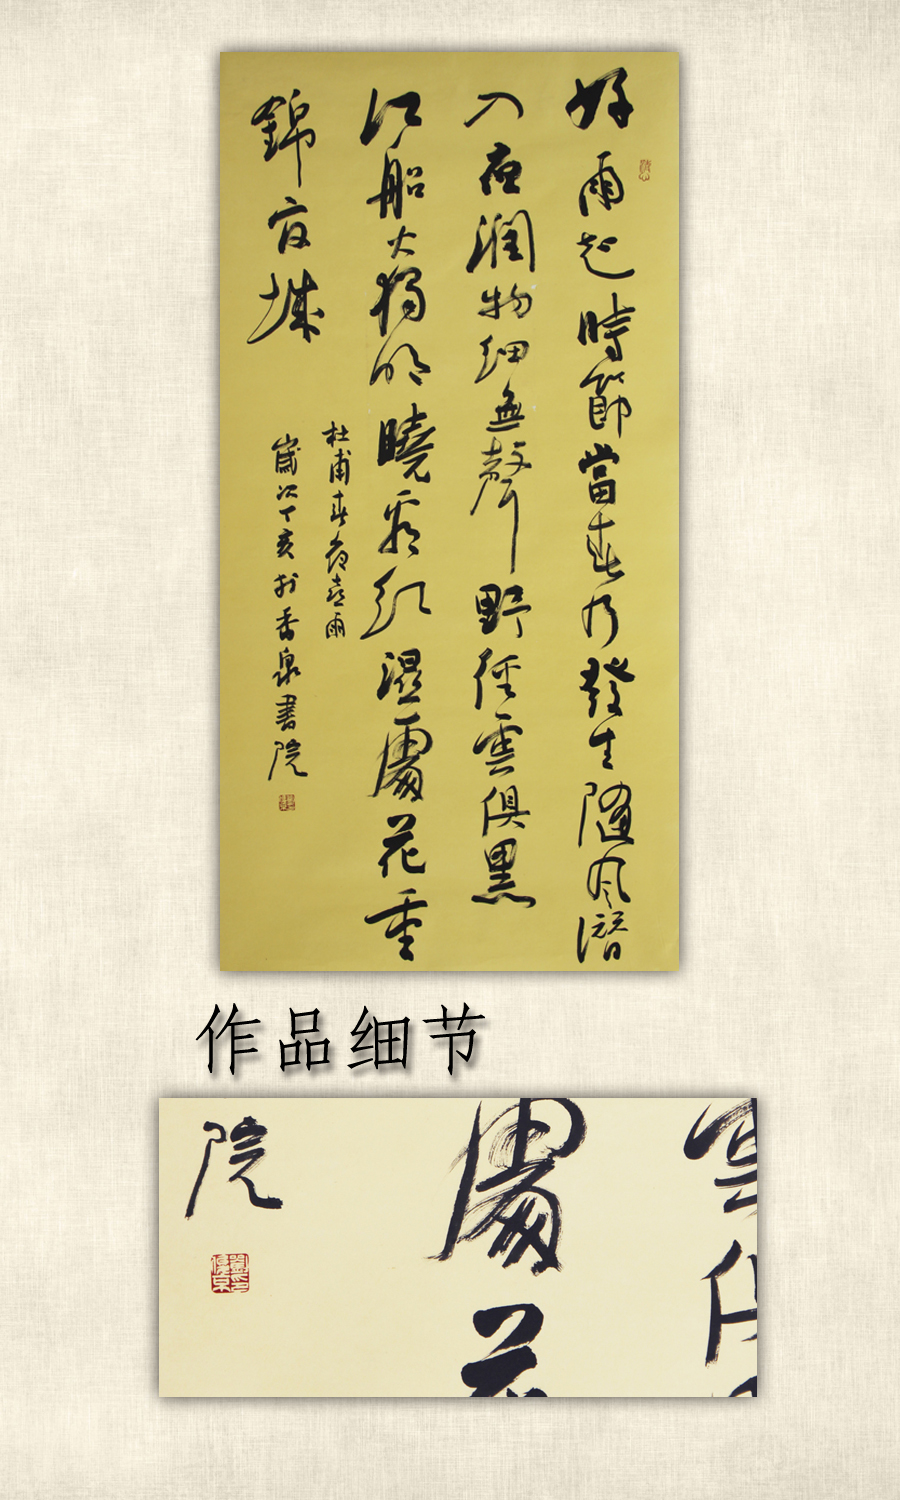 好雨知時節當春乃發生隨風潛
入夜潤物細無聲野徑雲俱黑
江船火獨明曉看紅濕處花重
錦官城
杜甫春夜喜雨
歲次丁亥於香泉書院
作品细节
雲俱
處花
院